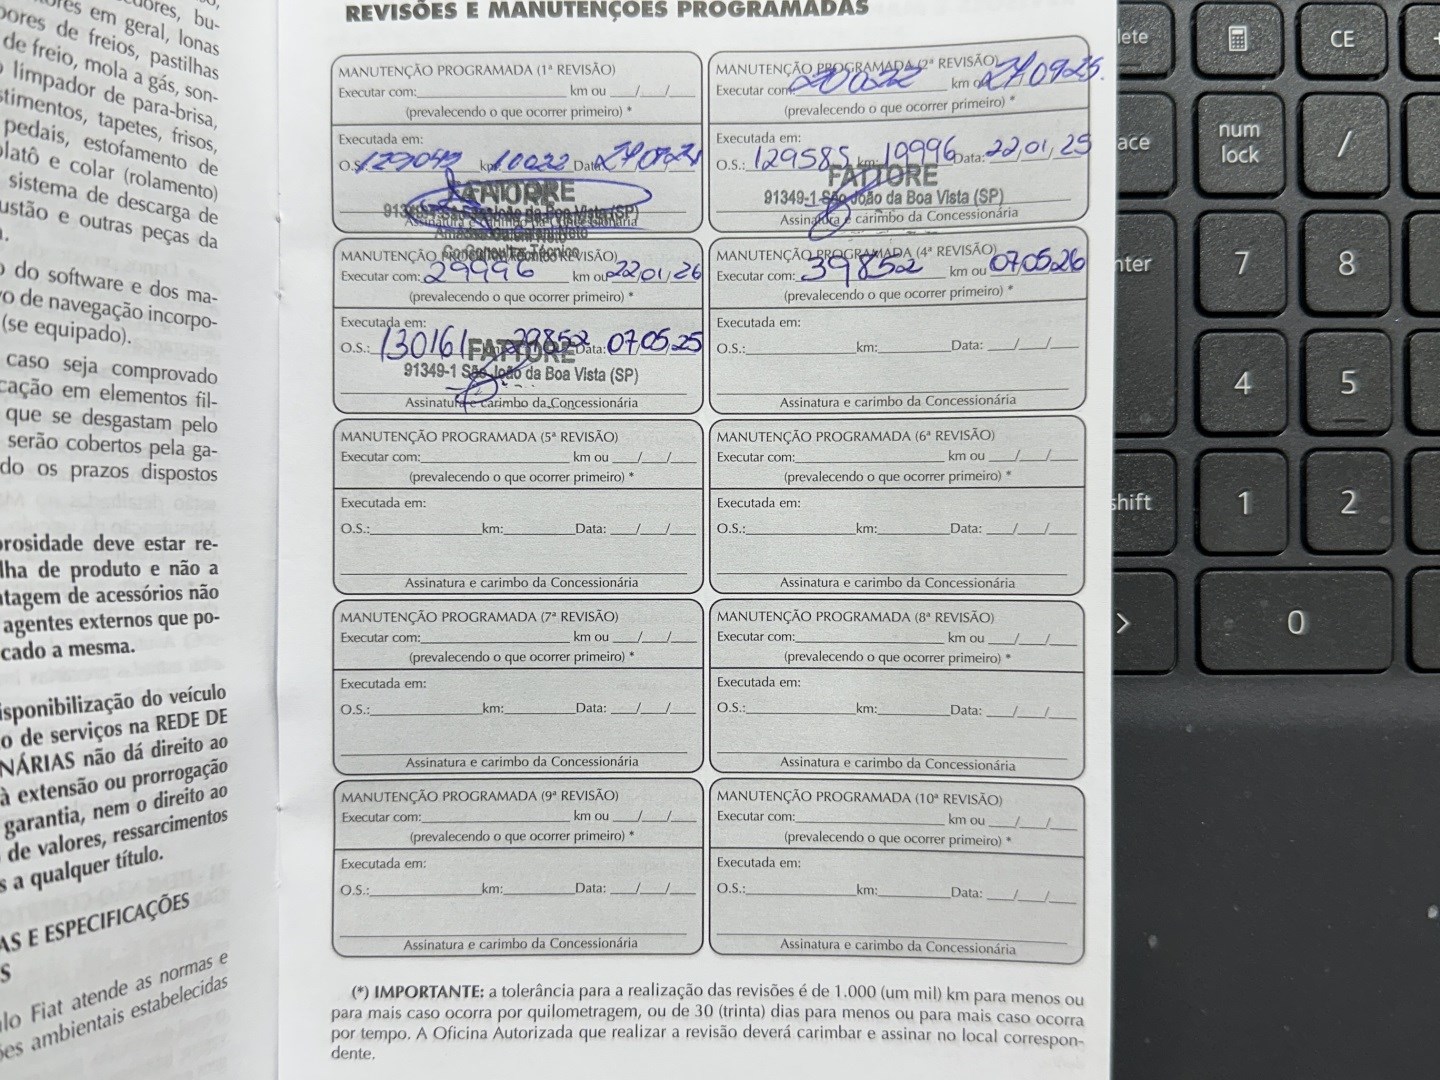 dores, bu-
ores em geral, lonas
ores de freios, pastilhas
de freio, mola a gás, son-
o limpador de para-brisa,
stimentos, tapetes, frisos,
pedais, estofamento de
platô e colar (rolamento)
sistema de descarga de
ustão e outras peças da
a.
o do software e dos ma-
vo de navegação incorpo-
(se equipado).
caso seja comprovado
cação em elementos fil-
que se desgastam pelo
serão cobertos pela ga-
do os prazos dispostos
orosidade deve estar re-
lha de produto e não a
ntagem de acessórios não
agentes externos que po-
cado a mesma.
isponibilização do veículo
o de serviços na REDE DE
NÁRIAS não dá direito ao
à extensão ou prorrogação
garantia, nem o direito ao
de valores, ressarcimentos
s a qualquer título.
AS E ESPECIFICAÇÕES
S
ulo Fiat atende as normas e
ões ambientais estabelecidas
REVISÕES E MANUTENÇÕES PROGRAMADAS
MANUTENÇÃO PROGRAMADA (1ª REVISÃO)
Executar com: km ou / /
(prevalecendo o que ocorrer primeiro) *
Executada em:
O.S.: km: 10022 Data:
FATTORE
91349-1 São João da Boa Vista (SP)
Consultor Técnico
MANUTENÇÃO PROGRAMADA (2ª REVISÃO)
Executar com: 20022 km ou 24 09 25
(prevalecendo o que ocorrer primeiro) *
Executada em:
O.S.: 129585 km: 19996 Data: 22/01/25
FATTORE
91349-1 São João da Boa Vista (SP)
Assinatura e carimbo da Concessionária
MANUTENÇÃO PROGRAMADA (3ª REVISÃO)
Executar com: 29996 km ou 22/01/26
(prevalecendo o que ocorrer primeiro) *
Executada em:
O.S.: 130161 km: 29852 Data: 07.05.25
FATTORE
91349-1 São João da Boa Vista (SP)
Assinatura e carimbo da Concessionária
MANUTENÇÃO PROGRAMADA (4ª REVISÃO)
Executar com: 39852 km ou 07.05.26
(prevalecendo o que ocorrer primeiro) *
Executada em:
O.S.: km: Data: / /
Assinatura e carimbo da Concessionária
MANUTENÇÃO PROGRAMADA (5ª REVISÃO)
Executar com: km ou / /
(prevalecendo o que ocorrer primeiro) *
Executada em:
O.S.: km: Data: / /
Assinatura e carimbo da Concessionária
MANUTENÇÃO PROGRAMADA (6ª REVISÃO)
Executar com: km ou / /
(prevalecendo o que ocorrer primeiro) *
Executada em:
O.S.: km: Data: / /
Assinatura e carimbo da Concessionária
MANUTENÇÃO PROGRAMADA (7ª REVISÃO)
Executar com: km ou / /
(prevalecendo o que ocorrer primeiro) *
Executada em:
O.S.: km: Data: / /
Assinatura e carimbo da Concessionária
MANUTENÇÃO PROGRAMADA (8ª REVISÃO)
Executar com: km ou / /
(prevalecendo o que ocorrer primeiro) *
Executada em:
O.S.: km: Data: / /
Assinatura e carimbo da Concessionária
MANUTENÇÃO PROGRAMADA (9ª REVISÃO)
Executar com: km ou / /
(prevalecendo o que ocorrer primeiro) *
Executada em:
O.S.: km: Data: / /
Assinatura e carimbo da Concessionária
MANUTENÇÃO PROGRAMADA (10ª REVISÃO)
Executar com: km ou / /
(prevalecendo o que ocorrer primeiro) *
Executada em:
O.S.: km: Data: / /
Assinatura e carimbo da Concessionária
(*) IMPORTANTE: a tolerância para a realização das revisões é de 1.000 (um mil) km para menos ou
para mais caso ocorra por quilometragem, ou de 30 (trinta) dias para menos ou para mais caso ocorra
por tempo. A Oficina Autorizada que realizar a revisão deverá carimbar e assinar no local correspon-
dente.
lete
CE
+
ace
num
lock
/
nter
7
8
4
5
shift
1
2
>
0